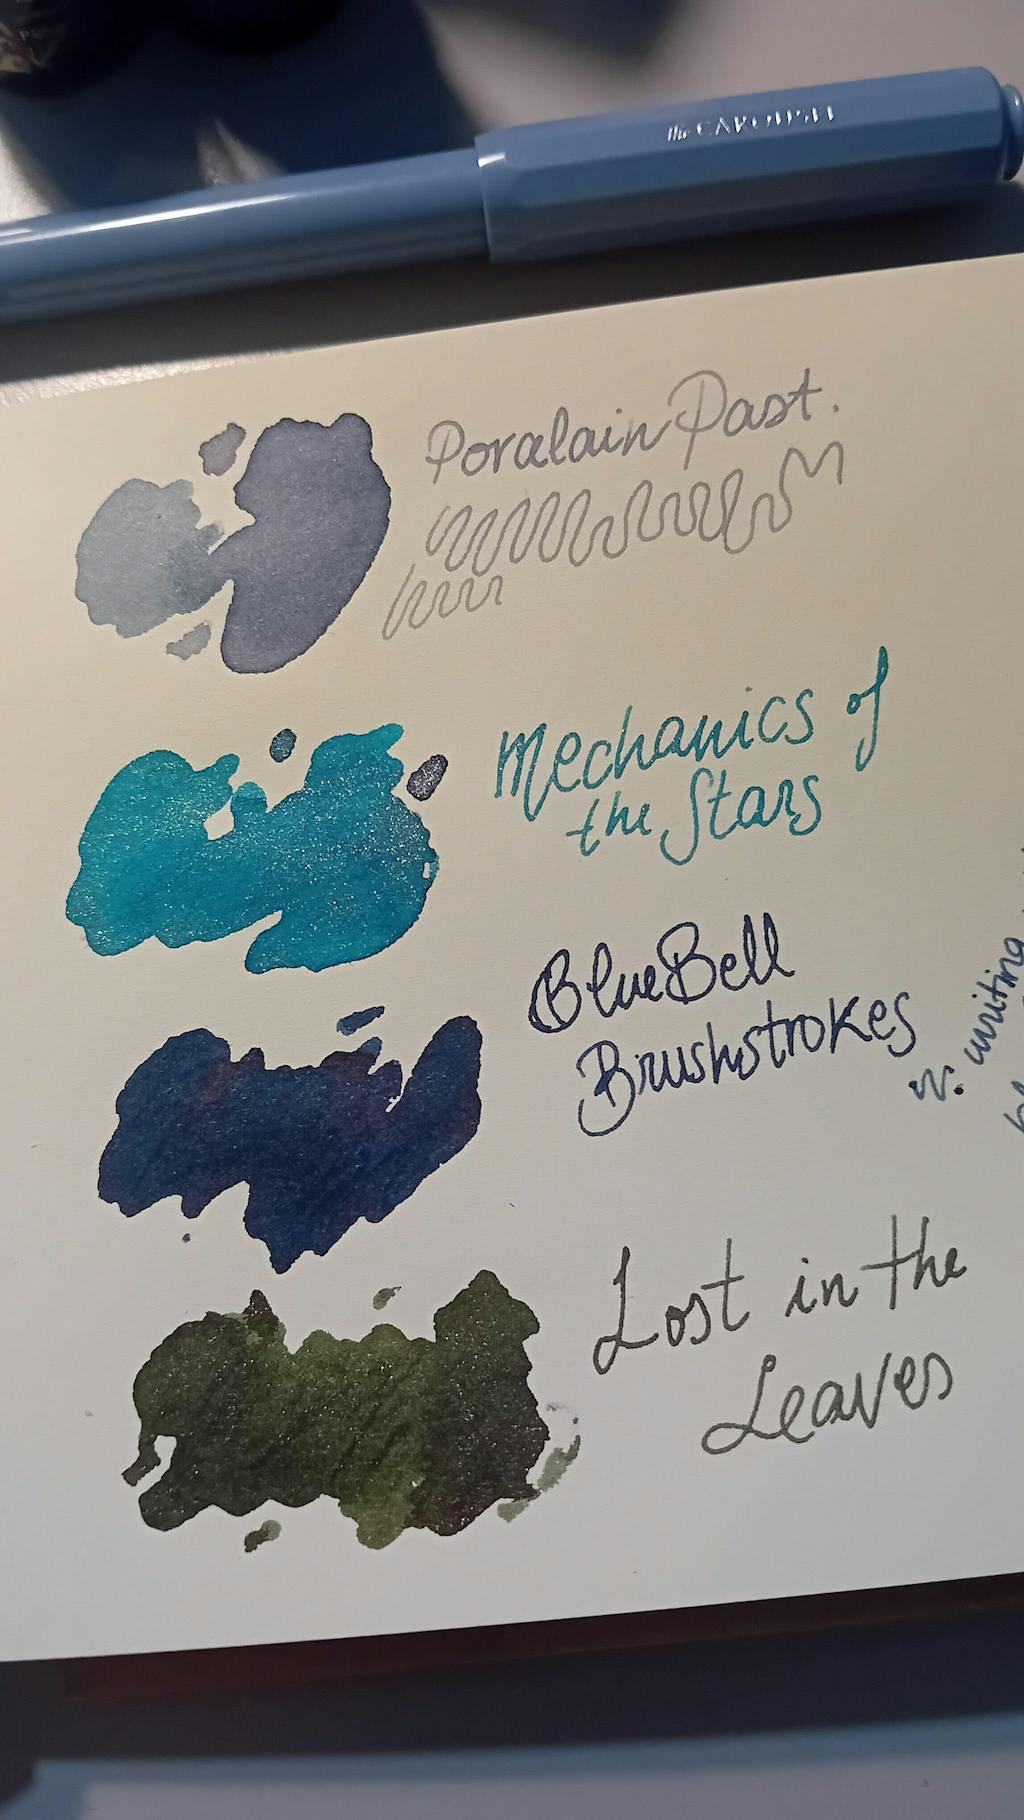 the CAROUSEL
Poralain Past.
Mechanics of
the Stars
BlueBell
Brushstrokes
w. writing
Lost in the
Leaves